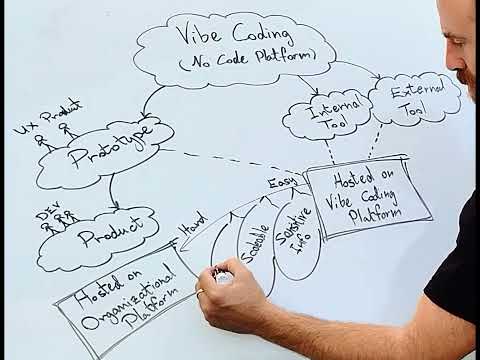 Vibe Coding
(No Code Platform)
UX Product
Prototype
Internal
Tool
External
Tool
DEV
Product
Easy
Hard
Scaleable
Sensitive
Info
Hosted on
Vibe Coding
Platform
Hosted on
Organizational
Platform